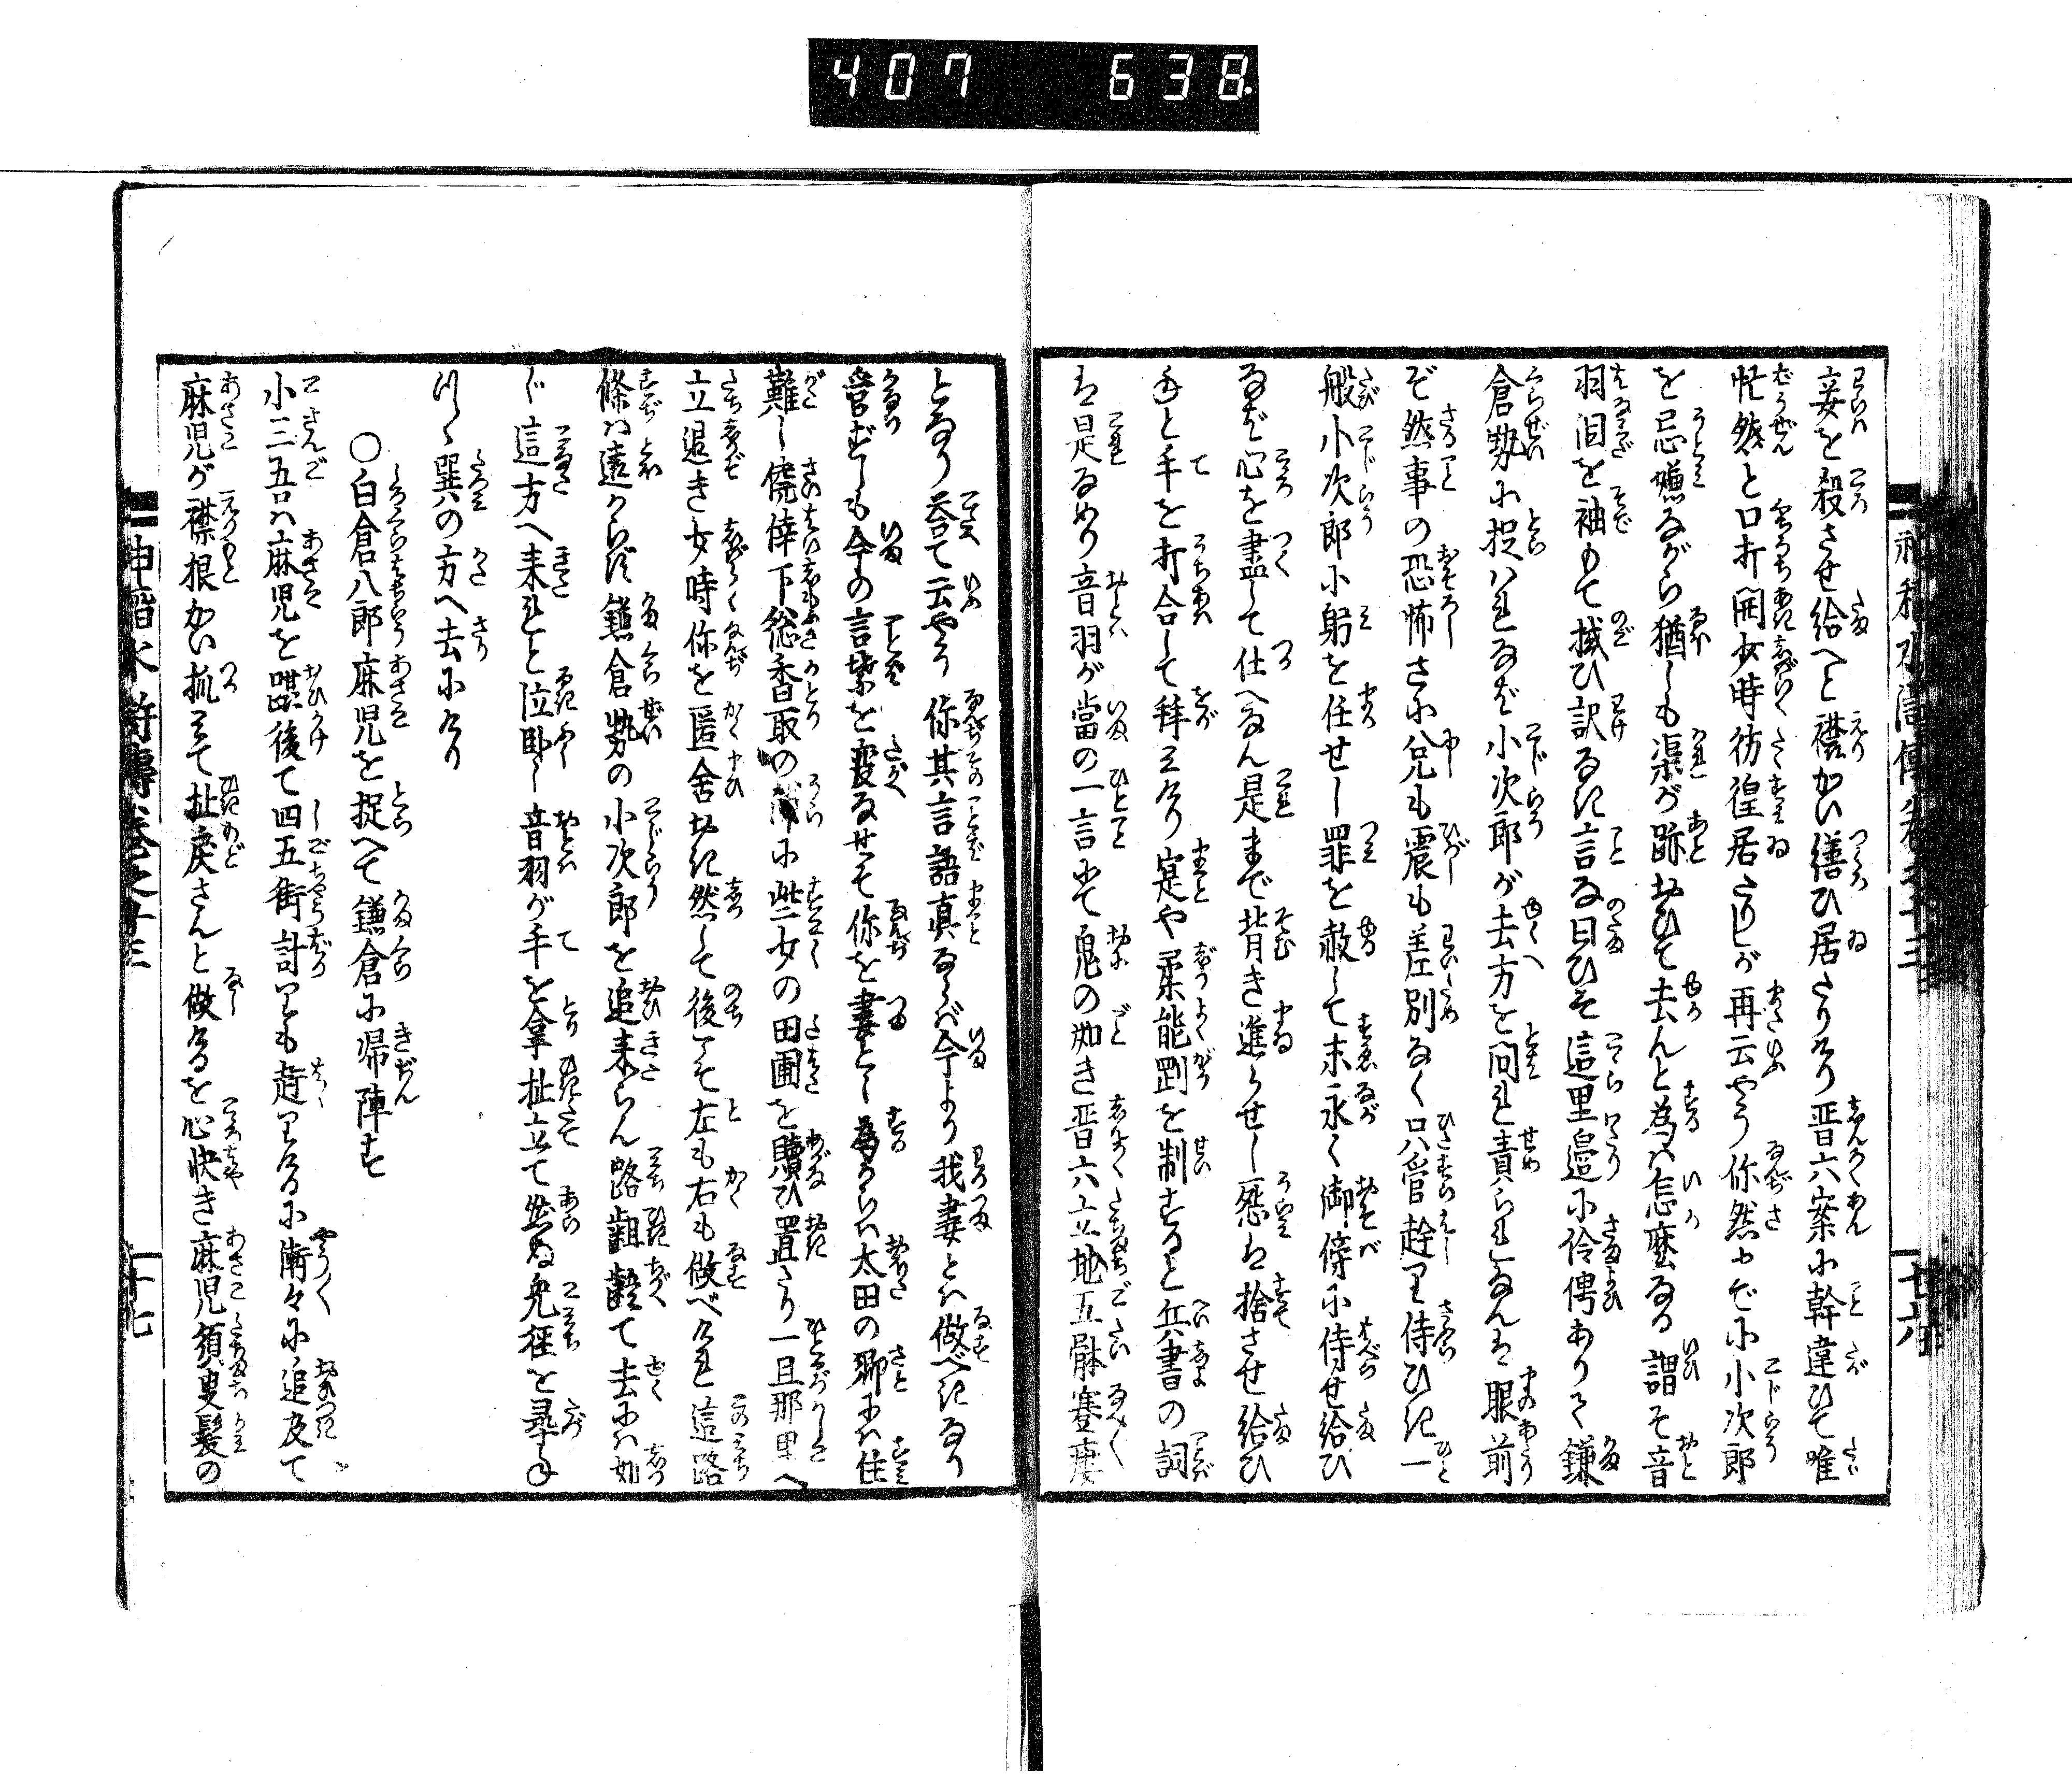 407 638
妾を殺させ給へと襟かい繕ひ居たりけり晋六案に幹違ひて唯
忙然と口打開少時彷徨居たりしが再云やう你然までに小次郎
を忌嫌ながら猶しも渠が跡おひて去んと為は怎麼なる謂そ音
羽泪を袖もて拭ひ訳なき言な曰ひそ這里邉に伶俜ありて鎌
倉勢に捉はれなば小次郎が去方を問れ責られなんは眼前
ぞ然事の恐怖さに兄も震も差別なく只管趕て侍ひき一
般小次郎に躬を任せし罪を赦して末永く御傍に侍せ給ひ
なば心を盡して仕へなん是まで背き進らせし怨は捨させ給ひ
ねと手を打合して拜みけり寔や柔能剛を制すると兵書の詞
は是なめり音羽が當の一言にて鬼の如き晋六立地五躰蹇痿
となり荅て云やう你其言語真ならば今より我妻とは做べきなり
然しも今の言葉を変なせそ你を妻とし為るからは太田の郷には住
難し僥倖下総香取の浦に些少の田圃を贖ひ置たり一旦那里へ
立退き女時你を匿舎おき然して後こそ左も右も做べけれ這路
條は遠からず鎌倉勢の小次郎を追来らん路齟齬て去には如
じ這方へ来れと泣卧し音羽が手を拿扯立て然ぬ兎徑を尋ね
つゝ巽の方へ去にけり
〇白倉八郎麻児を捉へて鎌倉に帰陣す
小三五は麻児を跟後て四五街計りも趕りけるに漸々に追及て
麻児が襟根かい抓みて扯戻さんと做けるを心快き麻児須臾髪の
神稻水滸傳巻之十三
十七